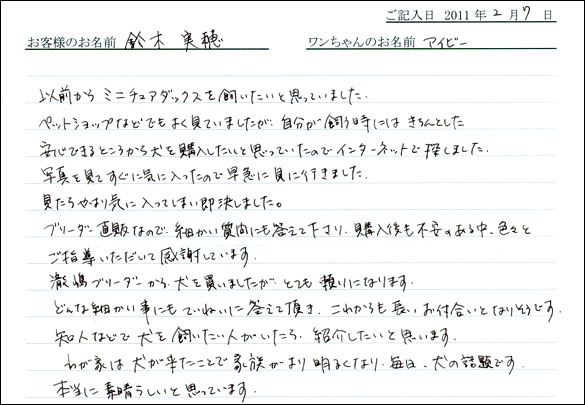 ご記入日 2011年2月7日
お客様のお名前 鈴木 実穂 ワンちゃんのお名前 アイビー
以前から ミニチュアダックスを飼いたいと思っていました.
ペットショップなどでもよく見ていましたが. 自分が飼う時には きちんとした
安心できるところから犬を購入したいと思っていたのでインターネットで探しました.
写真を見てすぐに気に入ったので早急に見に行きました.
見たらやはり気に入ってしまい即決しました。
ブリーダー直販なので、細かい質問にも答えて下さり、購入後も不安のある中、色々と
ご指導いただいて感謝しています.
瀧嶋ブリーダーから犬を買いましたが、とても頼りになります.
どんな細かい事にもていねいに答えて頂き、これからも長いお付合いとなりそうです.
知人などで犬を飼いたい人がいたら、紹介したいと思います.
わが家は犬が来たことで家族がより明るくなり、毎日、犬の話題です.
本当に素晴らしいと思っています.